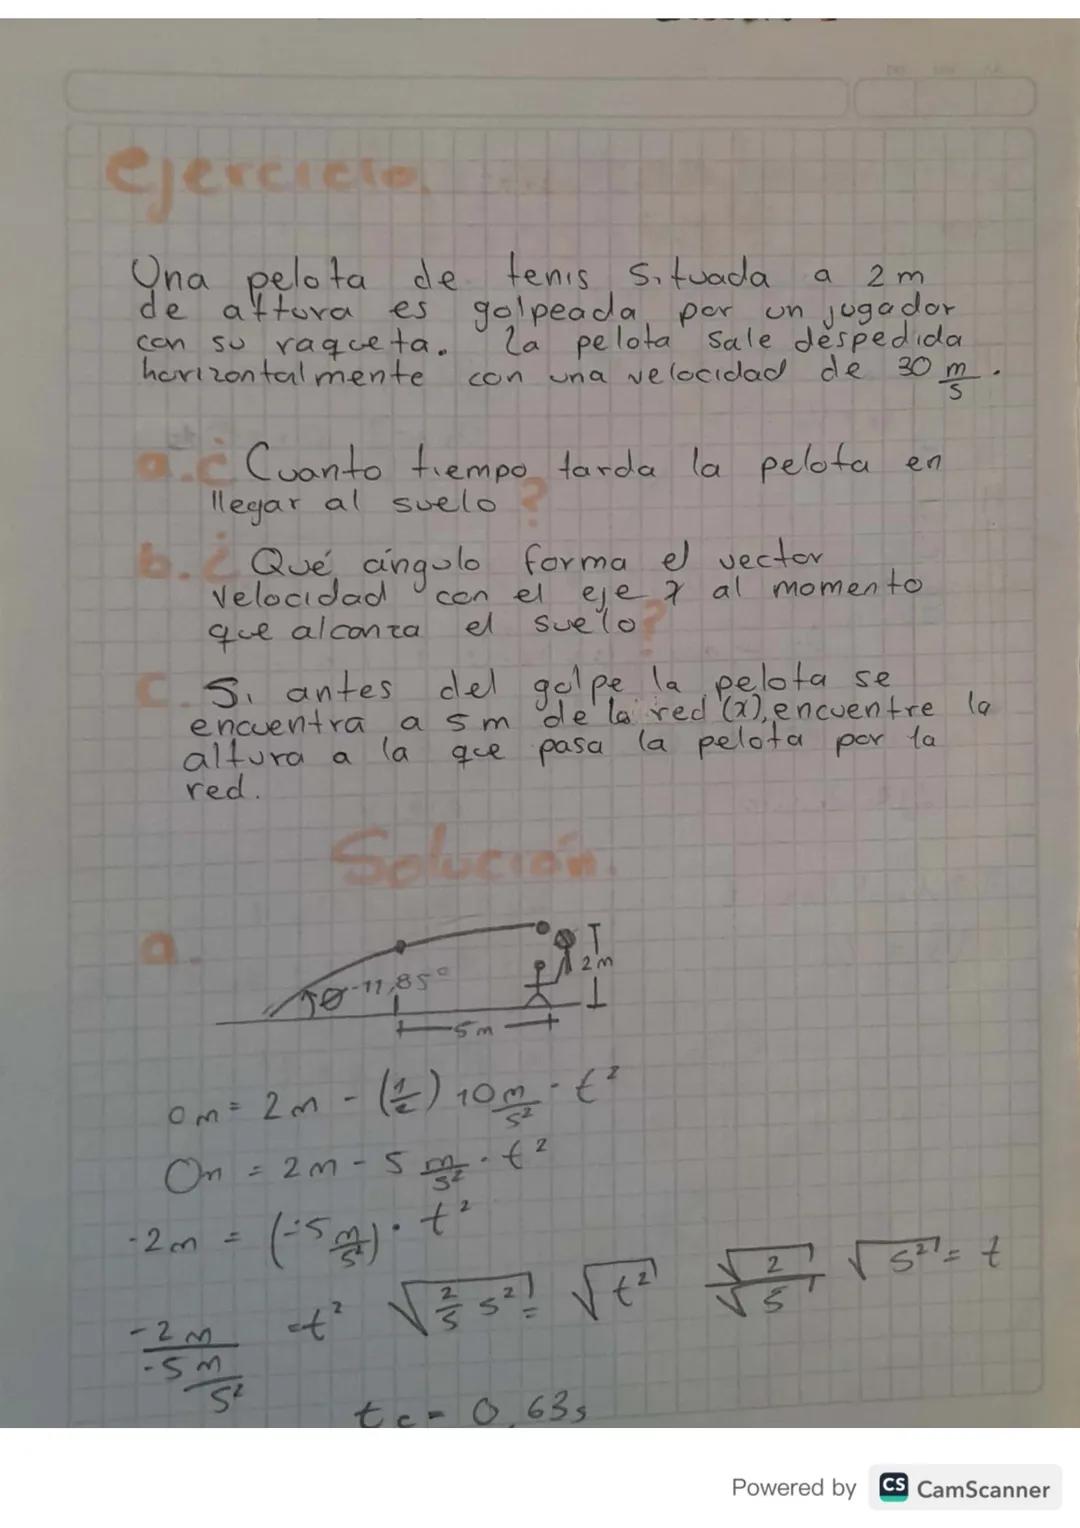 Ejercicio.
Una pelota de tenis situada a 2 m
de altura es golpeada por un jugador
con su raqueta. La pelota sale despedida
horizontalmente con una velocidad de 30 m/s.
a. ¿Cuanto tiempo tarda la pelota en
llegar al suelo?
b. ¿Qué ángulo forma el vector
velocidad con el eje x al momento
que alcanza el suelo?
c. Si antes del golpe la pelota se
encuentra a 5 m de la red (x), encuentre la
altura a la que pasa la pelota por la
red.
Solución.
a.
2 m
θ -11,85°
5 m
0 m = 2 m - (1/2) 10 m/s² · t²
0 m = 2 m - 5 m/s² · t²
-2 m = (-5 m/s²) · t²
-2 m / -5 m/s² = t² √(2/5 s²) = √t² √2/√5 √s² = t
tc = 0,63 s
Powered by CS CamScanner